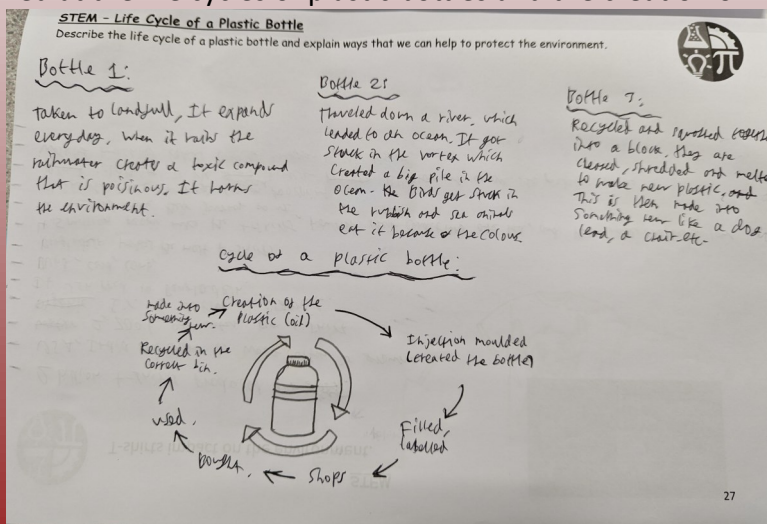 STEM – Life Cycle of a Plastic Bottle
Describe the life cycle of a plastic bottle and explain ways that we can help to protect the environment.
Bottle 1:
Taken to landfull, It expands
everyday. When it rains the
rainwater creates a toxic compound
that is poisinous. It harms
the envirionment.
Bottle 2:
Traveled down a river, which
leaded to an ocean. It got
stuck in the vortex which
created a big pile in the
ocean. the Birds get stuck in
the rubbish and sea animals
eat it because of the colour.
Bottle 3:
Recycled and squashed together
into a block, they are
cleaned, shredded and melted
to make new plastic, and
This is then made into
Something new like a dog
lead, a chair etc-
Cycle of a plastic bottle:
Creation of the
Plastic (oil)
Injection moulded
(created the bottle)
Filled,
labelled
Shops
Bought.
used.
Recycled in the
correct bin.
made into
Something new.
27